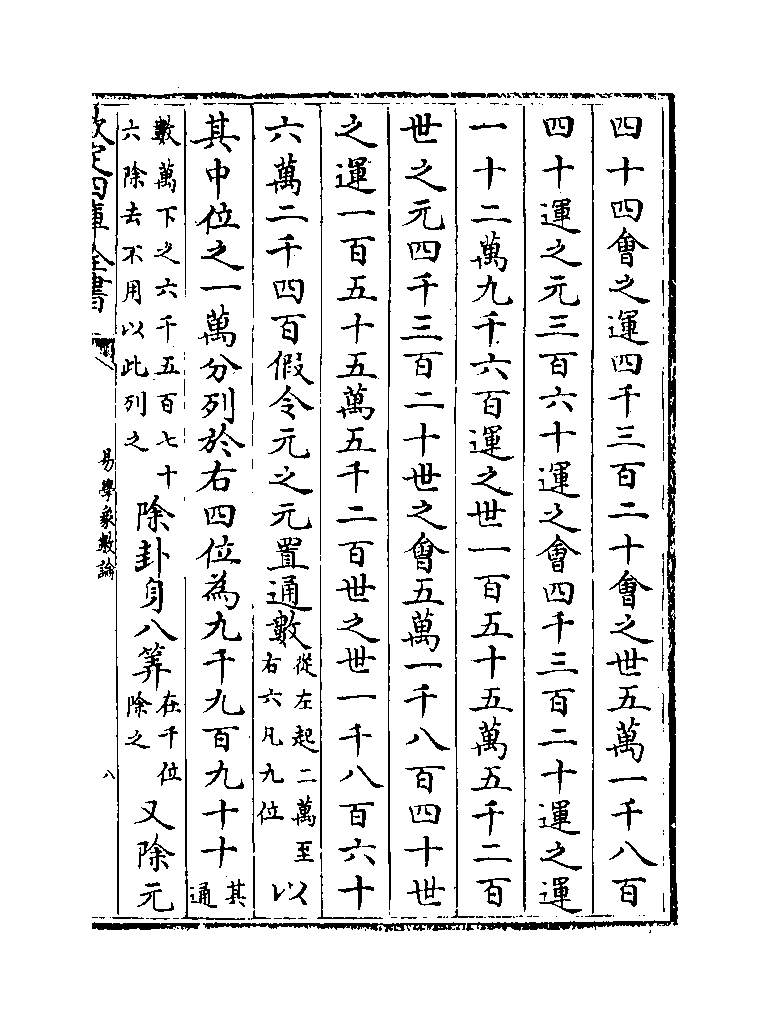 四十四會之運四千三百二十會之世五萬一千八百
四十運之元三百六十運之會四千三百二十運之運
一十二萬九千六百運之世一百五十五萬五千二百
世之元四千三百二十世之會五萬一千八百四十世
之運一百五十五萬五千二百世之世一千八百六十
六萬二千四百假令元之元置通數從左起二萬至右六凡九位以
其中位之一萬分列於右四位為九千九百九十十其通
數萬下之六千五百七十六除去不用以此列之除卦身八筭在千位除之又除元
欽定四庫全書
易學象數論
八